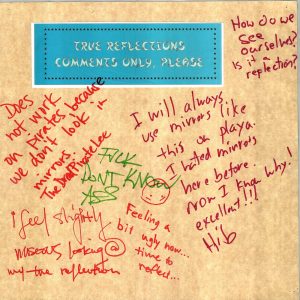 TRUE REFLECTIONS
COMMENTS ONLY, PLEASE
How do we
see
ourselves?
is it a
reflection?
Does
not work
on Pirates because
we don't look in
mirrors.
The Dread Pirate Lee
FUCK
DONT KNOW
ASS
I will always
use mirrors like
this on playa.
I hated mirrors
here before.
Now I know why!
excellent!!!
Hib
i feel slightly
looking @
my true reflection
Feeling a
bit ugly now...
time to
reflect...